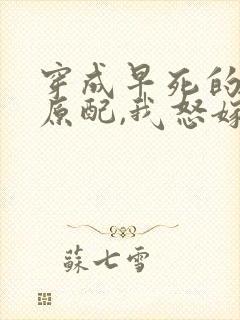 穿成早死的
原配,我怒嫁
蘇七雪